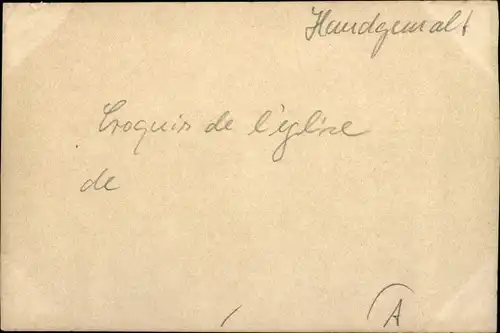 Handgemalt
Croquis de l'église
de
A